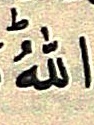 اللّٰهُ ؕ